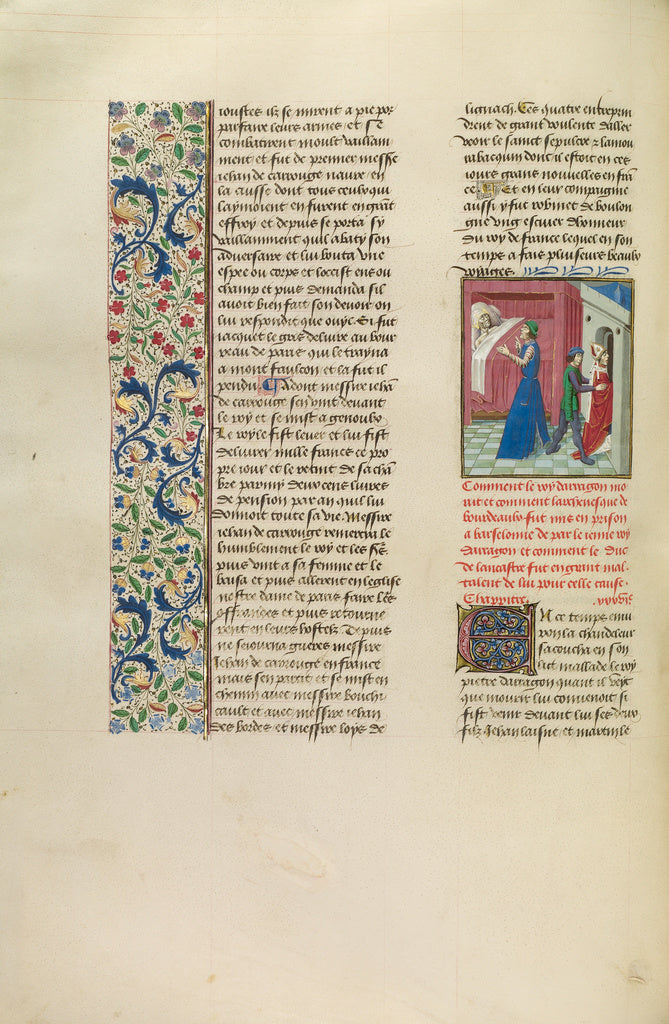 ioustes ilz se mirent a pie por
parfaire leurs armes et se
combatirent moult vaillam
ment et fut de premier messe
iehan de carrouge navre en
la cuisse dont tous ceulx qui
laymoient en furent en grant
effroy et depuis se porta sy
vaillamment quil abaty son
adversaire et lui bouta une
espee ou corps et locist ens ou
champ et puis demanda sil
avoit bien fait son devoir on
lui respondit que ouyl. Si fut
iacquet le gris delivre au bour
reau de paris qui le trayna
a mont faulcon et la fut il
pendu. Adont messire iehan
de carrouge sen vint devant
le roy et se mist a genoulx
Le roy le fist lever et lui fist
delivrer mille francs ce pro
pre iour et le retint de sa cha
bre parmy deux cens livres
de pension par an quil lui
donnoit toute sa vie. Messire
iehan de carrouge remercia le
humblement le roy et les
puis vint a sa femme et le
baisa et puis allerent en leglise
nostre dame de paris faire les
offrandes et puis retourne
rent en leurs hostelz. Depuis
ne seiourna gueres messire
Jehan de carrouge en france
mais sen partit et se mist en
chemin avec messire bouchi
cault et avec messire iehan
des bordes et messire loys de
lignach. Ces quatre entreprin
drent de grant voulente daller
veoir le sainct sepulcre et lamou
rabacquin dont il estoit en ces
iours grans nouvelles en fran
ce. Et en leur compaignie
aussi y fut robinet de boulon
gne ung escuier dhonneur
du roy de france lequel en son
temps a fais pluiseurs beaulx
voyages.
Comment le roy darragon mo
rut et comment larchevesque de
bourdeaulx fut mis en prison
a barselonne de par le ienne roy
darragon et comment le duc
de lancastre fut en grant mal
talent de lui pour celle cause.
Chappitre
En ce temps envi
ron la chandeleur
sacoucha en son
lit mallade le roy
pietre darragon quant il veyt
que mourir lui convenoit si
fist venir devant lui ses deux
filz Jehan laisne et martin le